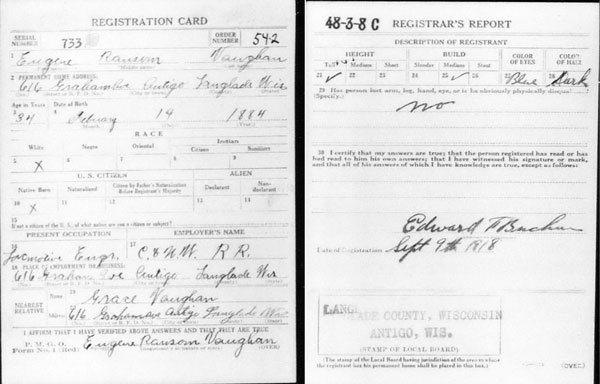 REGISTRATION CARD
SERIAL NUMBER 733
ORDER NUMBER 542
1 Eugene Ransom Vaughan
2 PERMANENT HOME ADDRESS:
616 Graham Ave Antigo Langlade Wis
Age in Years
Date of Birth
34 February 19 1884
RACE
White
Negro
Oriental
Indian
Citizen
Noncitizen
5 X
U. S. CITIZEN
ALIEN
Native Born
Naturalized
Citizen by Father's Naturalization Before Registrant's Majority
Declarant
Non-declarant
10 X
15
If not a citizen of the U. S., of what nation are you a citizen or subject?
PRESENT OCCUPATION
EMPLOYER'S NAME
16 Locmotive Engr.
17 C. & N.W. R R.
18 PLACE OF EMPLOYMENT OR BUSINESS:
616 Graham Ave Antigo Langlade Wis
NEAREST RELATIVE
Name 19 Grace Vaughan
20 616 Graham Ave Antigo Langlade Wis
I AFFIRM THAT I HAVE VERIFIED ABOVE ANSWERS AND THAT THEY ARE TRUE
P. M. G. O.
Form No. 1 (Red)
Eugene Ransom Vaughan
(OVER)
48-3-8 C REGISTRAR'S REPORT
DESCRIPTION OF REGISTRANT
HEIGHT
BUILD
COLOR OF EYES
COLOR OF HAIR
Tall
Medium
Short
Slender
Medium
Stout
21 ✓
22
23
24
25 ✓
26
27 Blue
28 Dark
29 Has person lost arm, leg, hand, eye, or is he obviously physically disqualified?
(Specify.)
no
30 I certify that my answers are true; that the person registered has read or has
had read to him his own answers; that I have witnessed his signature or mark,
and that all of his answers of which I have knowledge are true, except as follows:
Edward F
Date of Registration Sept 9th 1918
LANGLADE COUNTY, WISCONSIN
ANTIGO, WIS.
(STAMP OF LOCAL BOARD)
(The stamp of the Local Board having jurisdiction of the area in which the
registrant has his permanent home shall be placed in this box.)
(OVER)